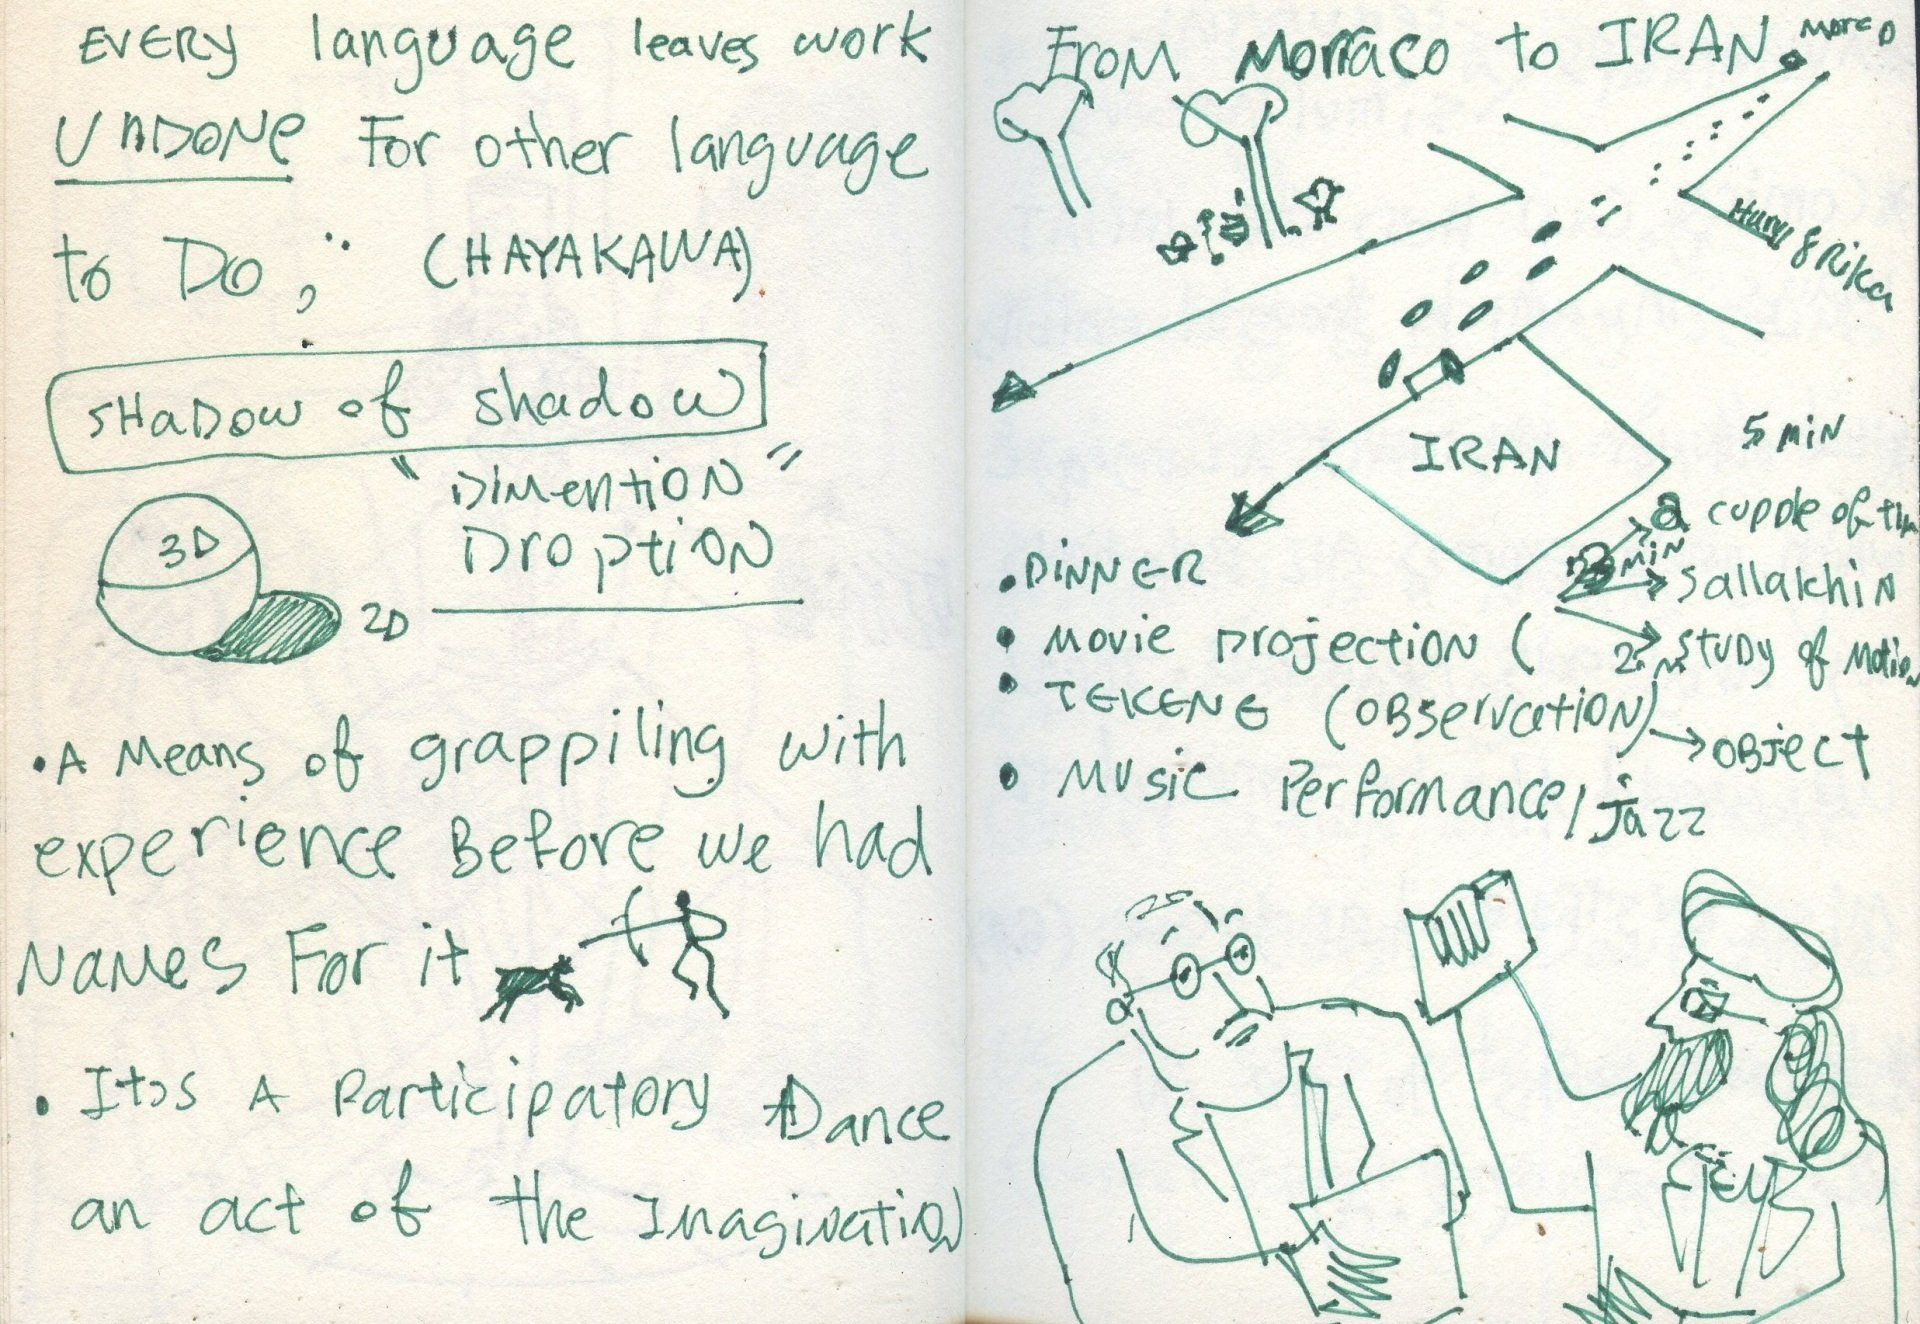 EVERY language leaves work
UNDONE For other language
to Do, (HAYAKAWA)
SHADOW of shadow
"DIMENTION"
DROPTION
3D
2D
• A Means of grappiling with
experience Before we had
Names For it
• It's A Participatory Dance
an act of the Imagination
From Morraco to IRAN
& Rika
IRAN
5 MiN
a cupple of
MiN
Sallakhin
STUDY of Motion
• DINNER
• Movie Projection (
• TEKENE (OBservation)
→ OBJECT
• Music Performance/jazz